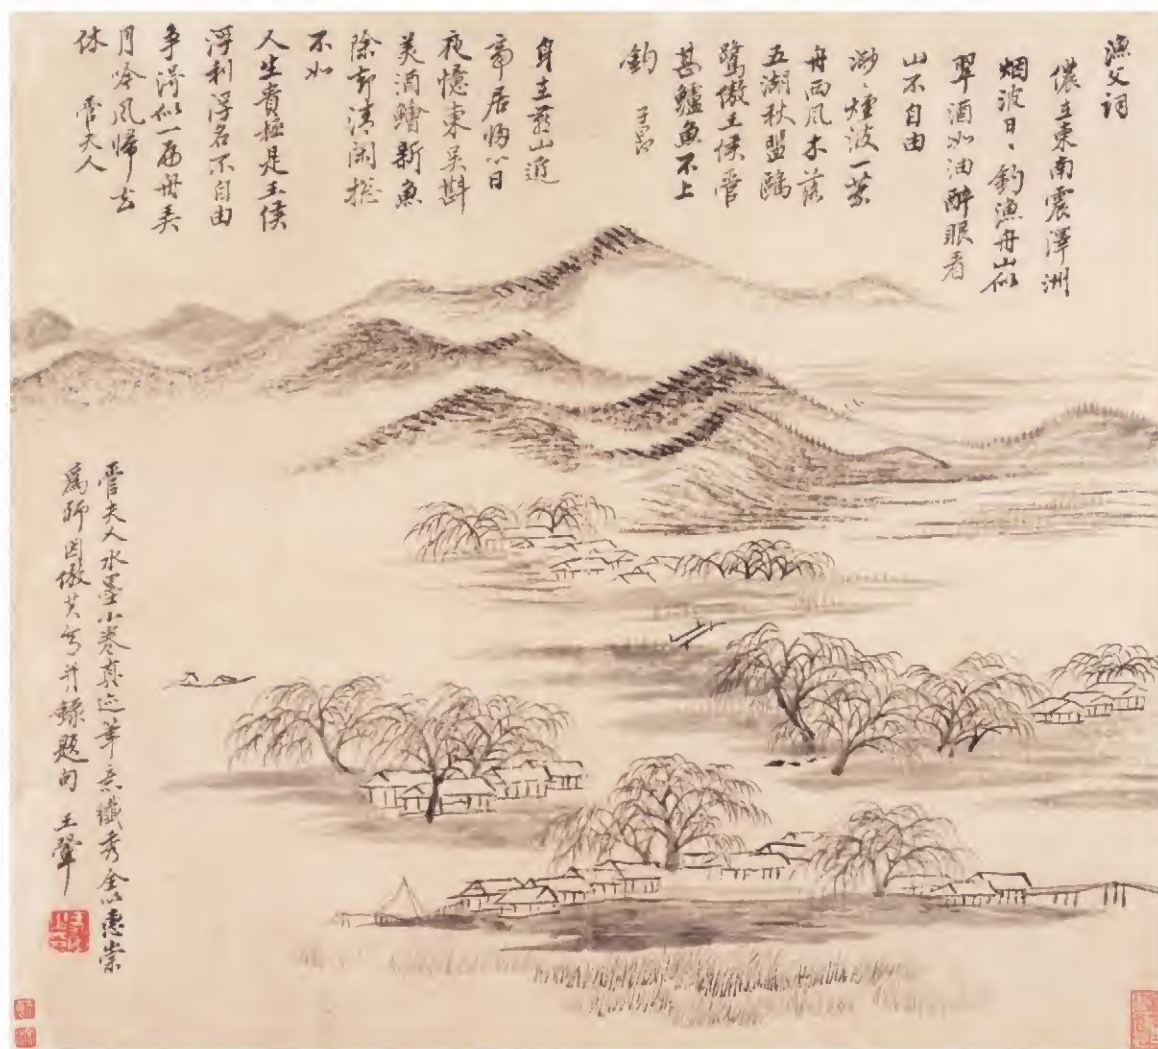 漁父詞
儂在東南震澤洲
烟波日〻釣漁舟山似
翠酒如油醉眼看
山不自由
渺〻煙波一葉
舟西風木落
五湖秋盟鷗
鷺傲王侯管
甚鱸魚不上
釣 子昂
身在燕山近
帝居歸心日
夜憶東吳斟
美酒鱠新魚
除却清閑揔
不如
人生貴極是王侯
浮利浮名不自由
爭得似一扁舟弄
月吟風歸去
休 管夫人
管夫人水墨小卷真迹筆意纖秀全以惠崇
為師因倣其并錄題句 王翬